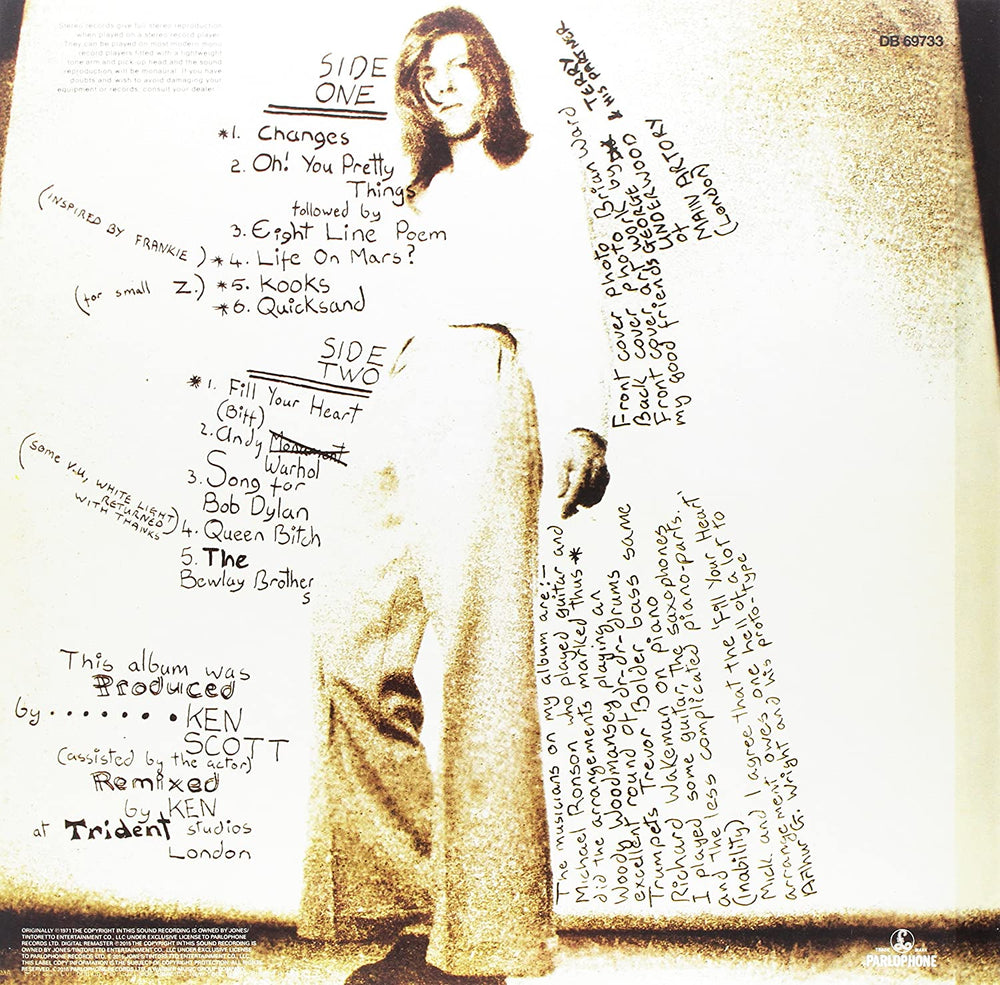 Stereo records give full stereo reproduction
when played on a stereo record player.
They can be played on most modern mono
record players fitted with a lightweight
tone arm and pick up head and the sound
reproduction will be monaural. If you have
doubts and wish to avoid damaging your
equipment or records, consult your dealer.
DB 69733
SIDE
ONE
*1. Changes
2. Oh! You Pretty
Things
followed by
3. Eight Line Poem
(INSPIRED BY FRANKIE) *4. Life On Mars?
(for small Z.) *5. Kooks
*6. Quicksand
SIDE
TWO
*1. Fill Your Heart
(Biff)
2. Andy Monument
Warhol
3. Song for
Bob Dylan
(some V.U, WHITE LIGHT
RETURNED
WITH THANKS)
4. Queen Bitch
5. The
Bewlay Brother
s
This album was
Produced
by ....... KEN
SCOTT
(assisted by the actor)
Remixed
by KEN
at Trident studios
London
Front cover photo Brian Ward
Back cover photo by & HIS PARTNER
Front cover art work TERRY
my good friends GEORGE UNDERWOOD
of
MAIN ARTORY
(London)
The musicians on my album are:-
Michael Ronson who played guitar and
did the arrangements marked thus *
Woody Woodmansey playing an
excellent round of dr-dr-drums same
Trumpets Trevor Bolder bass
Richard Wakeman on piano
I played some guitar, the saxophones
and the less complicated piano-parts.
(inability)
Mick and I agree that the 'Fill Your Heart
arrangement owes one hell of a lot to
Arthur G. Wright and his proto-type
ORIGINALLY ℗ 1971 THE COPYRIGHT IN THIS SOUND RECORDING IS OWNED BY JONES/
TINTORETTO ENTERTAINMENT CO., LLC UNDER EXCLUSIVE LICENSE TO PARLOPHONE
RECORDS LTD. DIGITAL REMASTER ℗ 2015 THE COPYRIGHT IN THIS SOUND RECORDING IS
OWNED BY JONES/TINTORETTO ENTERTAINMENT CO., LLC UNDER EXCLUSIVE LICENSE
TO PARLOPHONE RECORDS LTD. © 2015 JONES/TINTORETTO ENTERTAINMENT CO., LLC.
THIS LABEL COPY INFORMATION IS THE SUBJECT OF COPYRIGHT PROTECTION. ALL RIGHTS
RESERVED.
PARLOPHONE